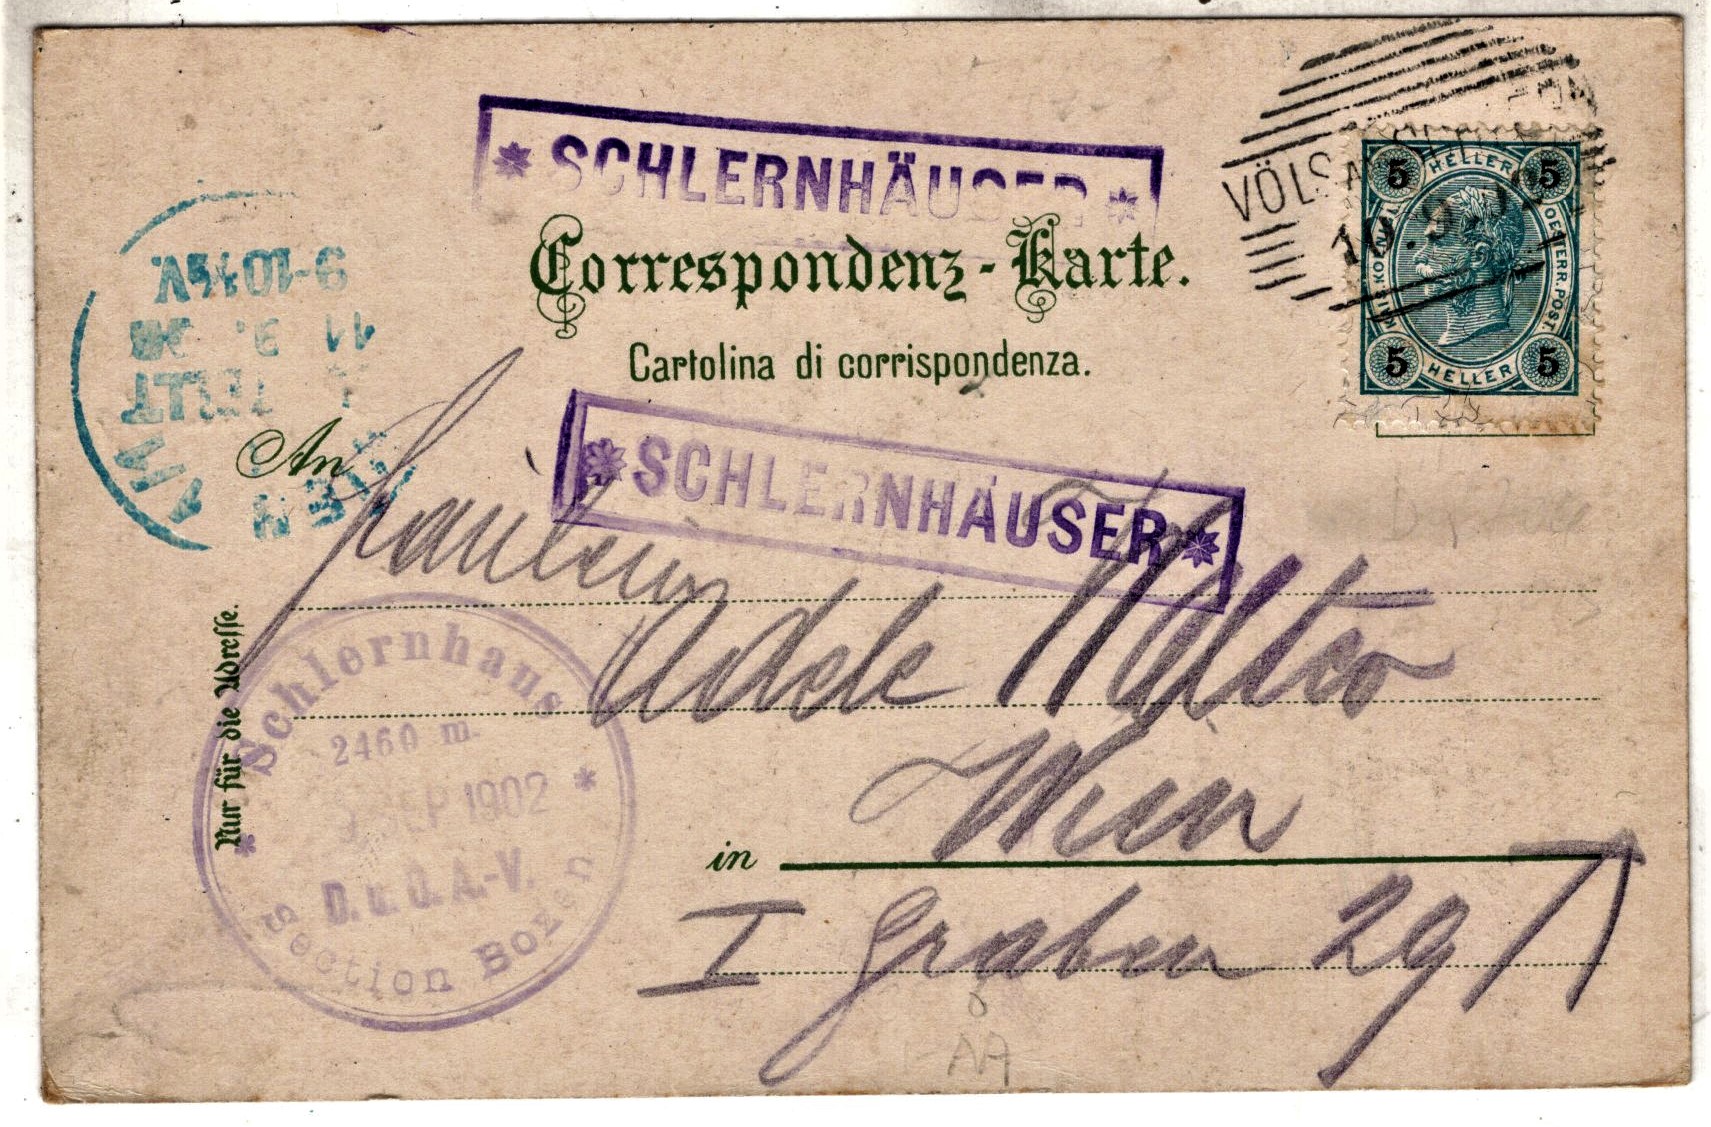 * SCHLERNHÄUSER *
Correspondenz-Karte.
Cartolina di corrispondenza.
VÖLS A.
10.9.
5 HELLER 5
KAIS. KÖNIGL. OESTERR. POST.
5 HELLER 5
9-10½V.
11 9.
WIEN
An
* SCHLERNHÄUSER *
Fräulein
Adele
Wien
in
I Graben 29
Nur für die Adresse.
Schlernhaus
2460 m.
SEP 1902
D. u. O. A.-V.
Section Bozen